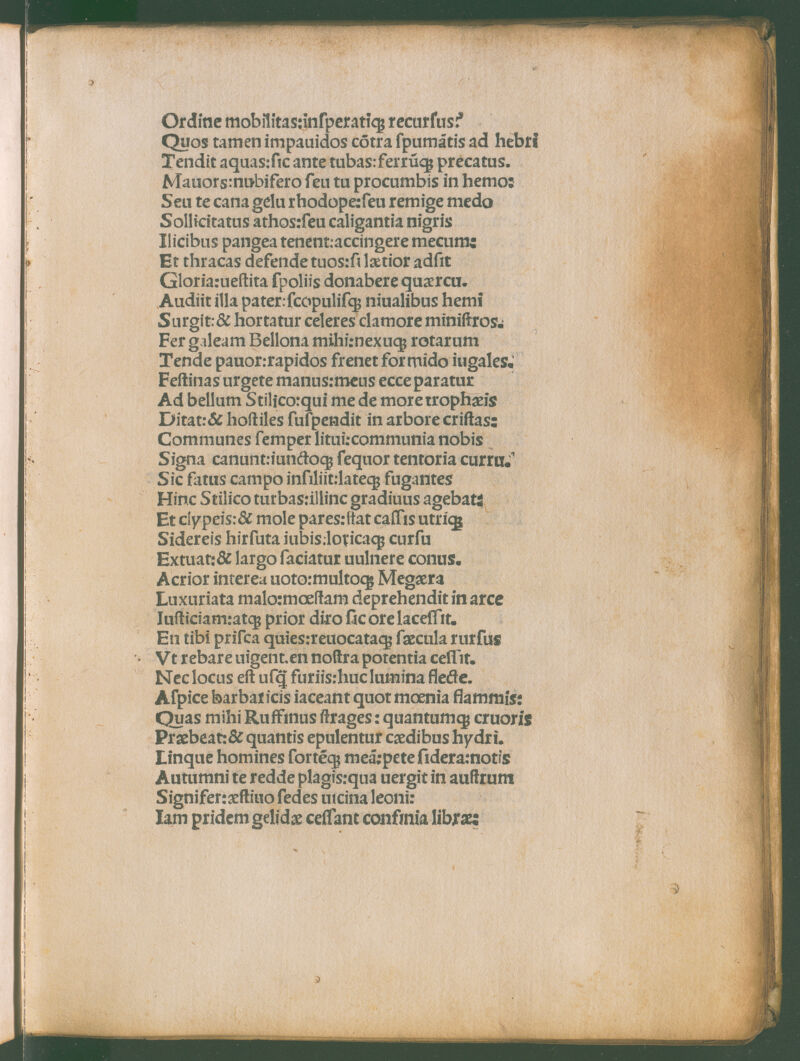 Ordine mobilitas:inſperatiqꝫ recurſus?
Quos tamen impauidos cõtra ſpumãtis ad hebri
Tendit aquas:ſic ante tubas:ferrũqꝫ precatus.
Mauors:nubifero ſeu tu procumbis in hemo:
Seu te cana gelu rhodope:ſeu remige medo
Sollicitatus athos:ſeu caligantia nigris
Ilicibus pangea tenent:accingere mecum:
Et thracas defende tuos:ſi lætior adſit
Gloria:ueſtita ſpoliis donabere quærcu.
Audiit illa pater:ſcopuliſqꝫ niualibus hemi
Surgit:& hortatur celeres clamore miniſtros.
Fer galeam Bellona mihi:nexuqꝫ rotarum
Tende pauor:rapidos frenet formido iugales.
Feſtinas urgete manus:meus ecce paratur
Ad bellum Stilico:qui me de more trophæis
Ditat:& hoſtiles ſuſpendit in arbore criſtas:
Communes ſemper litui:communia nobis
Signa canunt:iunctoqꝫ ſequor tentoria curru.
Sic fatus campo inſiliit:lateqꝫ fugantes
Hinc Stilico turbas:illinc gradiuus agebat:
Et clypeis:& mole pares:ſtat caſſis utriqꝫ
Sidereis hirſuta iubis:loricaqꝫ curſu
Extuat:& largo ſaciatur uulnere conus.
Acrior interea uoto:multoqꝫ Megæra
Luxuriata malo:mœſtam deprehendit in arce
Iuſticiam:atqꝫ prior diro ſic ore laceſſit.
En tibi priſca quies:reuocataqꝫ ſæcula rurſus
Vt rebare uigent.en noſtra potentia ceſſit.
Nec locus eſt uſq̃ furiis:huc lumina flecte.
Aſpice barbaricis iaceant quot mœnia flammis:
Quas mihi Ruffinus ſtrages: quantumqꝫ cruoris
Præbeat:& quantis epulentur cædibus hydri.
Linque homines ſortẽqꝫ meã:pete ſidera:notis
Autumni te redde plagis:qua uergit in auſtrum
Signifer:æſtiuo ſedes uicina leoni:
Iam pridem gelidæ ceſſant confinia libræ: